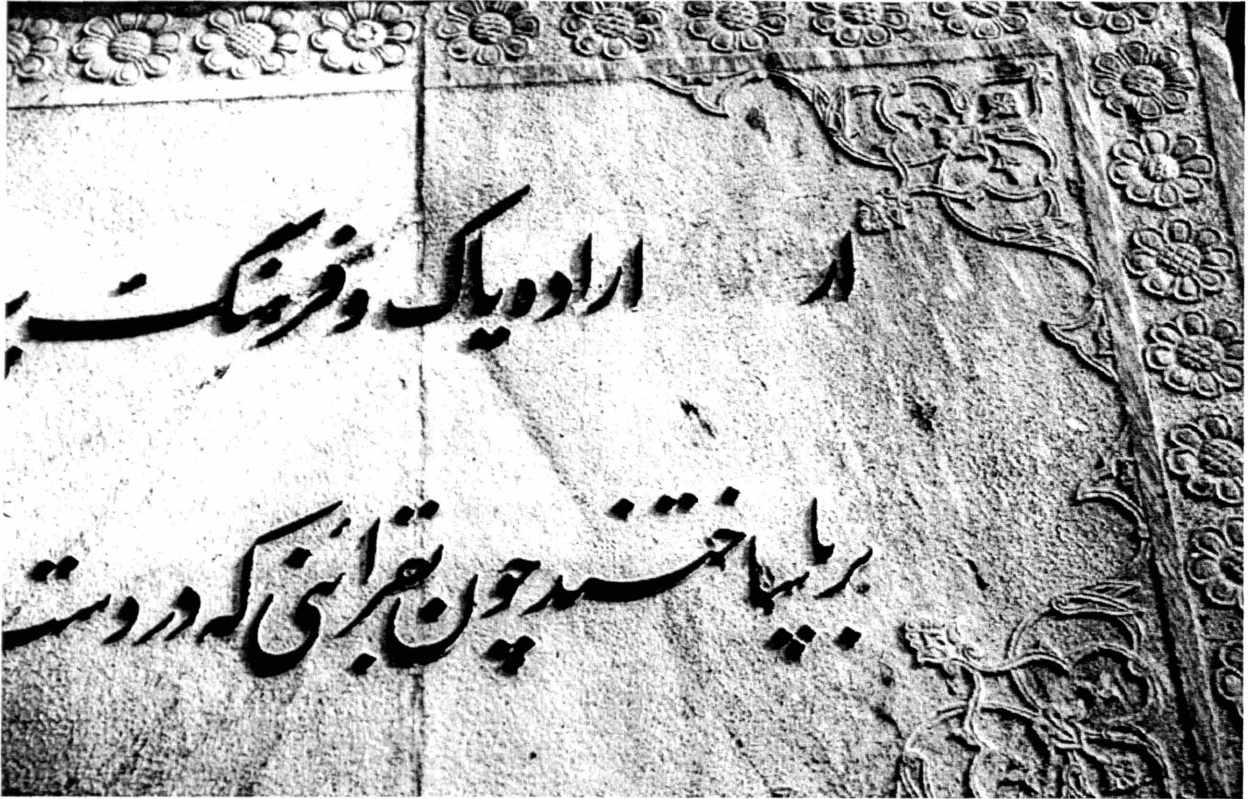 ار اراده پاک و فرهنگ
برپا ساختند چون بقرائنی که در دست